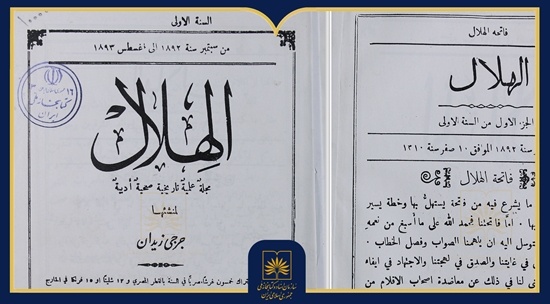 السنة الاولى
من سبتمبر سنة ١٨٩٢ الى اغسطس ١٨٩٣
الهلال
مجلة علمية تاريخية صحية ادبية
لمنشئها
جرجي زيدان
خمسون غرشا مصريا في السنة بالقطر المصري و ١٢ شلينا او ١٥ فرنكا في الخارج
کتابخانه ملی
ایران
فاتحة الهلال
الهلال
الجزء الاول من السنة الاولى
سنة ١٨٩٢ الموافق ١٠ صفر سنة ١٣١٠
فاتحة الهلال
ما يشرع فيه من ذوقة يستهل بها وخطة يسير
اما فاتحتنا فحمد الله على ما أسبغ من نعمه
توسل اليه ان يلهمنا الصواب وفصل الخطاب
في غايتنا والصديق في لهجتنا والاجتهاد في ايفاء
لنا في ذلك من معاضدة اصحاب الاقلام من
سازمان اسناد و کتابخانه ملی
جمهوری اسلامی ایران